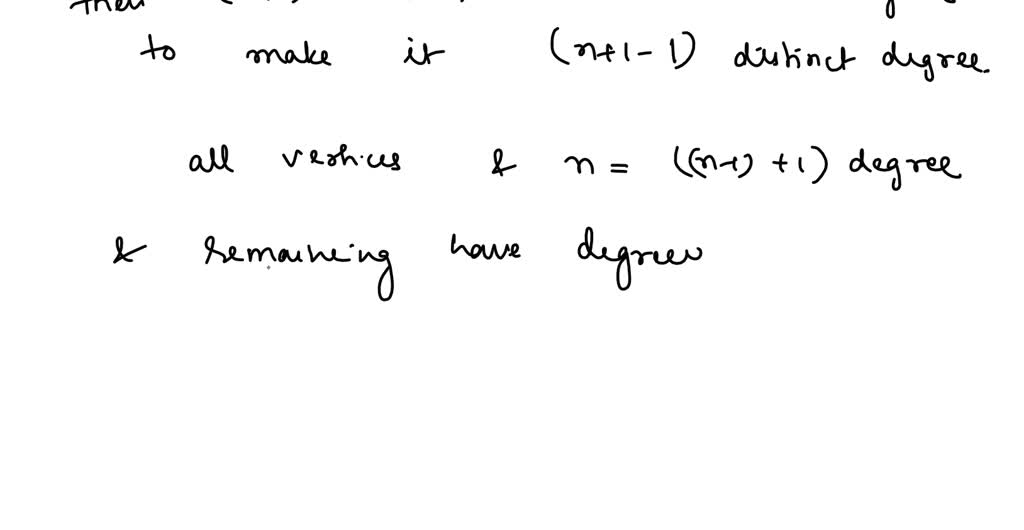 then
to make it (n+1-1) distinct degree.
all vertices & n = ((n-1) +1) degree
& remaining have degrees